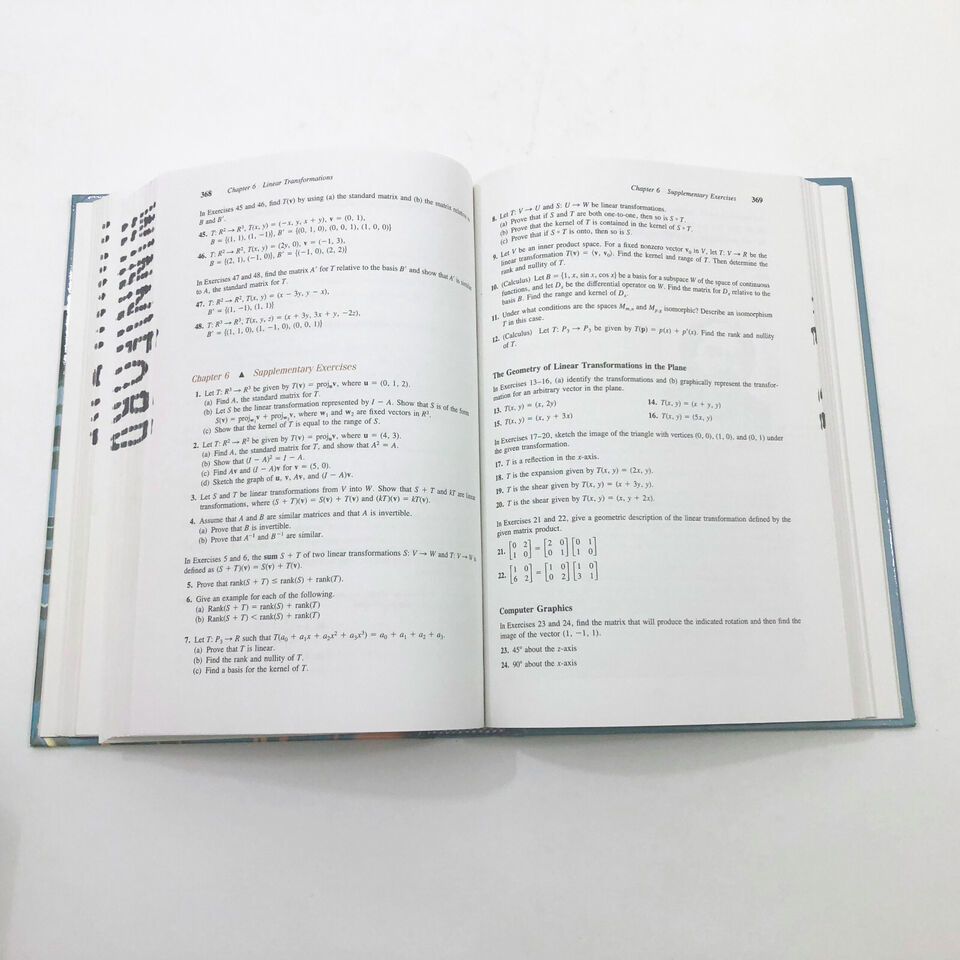 368 Chapter 6 Linear Transformations
In Exercises 45 and 46, find T(v) by using (a) the standard matrix and (b) the matrix relative to
B and B′.
45. T: R² → R³, T(x, y) = (−x, y, x + y), v = (0, 1),
B = {(1, 1), (1, −1)}, B′ = {(0, 1, 0), (0, 0, 1), (1, 0, 0)}
46. T: R² → R², T(x, y) = (2y, 0), v = (−1, 3),
B = {(2, 1), (−1, 0)}, B′ = {(−1, 0), (2, 2)}
In Exercises 47 and 48, find the matrix A′ for T relative to the basis B′ and show that A′ is similar
to A, the standard matrix for T.
47. T: R² → R², T(x, y) = (x − 3y, y − x),
B′ = {(1, −1), (1, 1)}
48. T: R³ → R³, T(x, y, z) = (x + 3y, 3x + y, −2z),
B′ = {(1, 1, 0), (1, −1, 0), (0, 0, 1)}
Chapter 6 ▲ Supplementary Exercises
1. Let T: R³ → R³ be given by T(v) = projᵤv, where u = (0, 1, 2).
(a) Find A, the standard matrix for T.
(b) Let S be the linear transformation represented by I − A. Show that S is of the form
S(v) = proj_w₁ v + proj_w₂ v, where w₁ and w₂ are fixed vectors in R³.
(c) Show that the kernel of T is equal to the range of S.
2. Let T: R² → R² be given by T(v) = projᵤv, where u = (4, 3).
(a) Find A, the standard matrix for T, and show that A² = A.
(b) Show that (I − A)² = I − A.
(c) Find Av and (I − A)v for v = (5, 0).
(d) Sketch the graph of u, v, Av, and (I − A)v.
3. Let S and T be linear transformations from V into W. Show that S + T and kT are linear
transformations, where (S + T)(v) = S(v) + T(v) and (kT)(v) = kT(v).
4. Assume that A and B are similar matrices and that A is invertible.
(a) Prove that B is invertible.
(b) Prove that A⁻¹ and B⁻¹ are similar.
In Exercises 5 and 6, the sum S + T of two linear transformations S: V → W and T: V → W is
defined as (S + T)(v) = S(v) + T(v).
5. Prove that rank(S + T) ≤ rank(S) + rank(T).
6. Give an example for each of the following.
(a) Rank(S + T) = rank(S) + rank(T)
(b) Rank(S + T) < rank(S) + rank(T)
7. Let T: P₃ → R such that T(a₀ + a₁x + a₂x² + a₃x³) = a₀ + a₁ + a₂ + a₃.
(a) Prove that T is linear.
(b) Find the rank and nullity of T.
(c) Find a basis for the kernel of T.
Chapter 6 Supplementary Exercises 369
8. Let T: V → U and S: U → W be linear transformations.
(a) Prove that if S and T are both one-to-one, then so is S ∘ T.
(b) Prove that the kernel of T is contained in the kernel of S ∘ T.
(c) Prove that if S ∘ T is onto, then so is S.
9. Let V be an inner product space. For a fixed nonzero vector v₀ in V, let T: V → R be the
linear transformation T(v) = ⟨v, v₀⟩. Find the kernel and range of T. Then determine the
rank and nullity of T.
10. (Calculus) Let B = {1, x, sin x, cos x} be a basis for a subspace W of the space of continuous
functions, and let Dₓ be the differential operator on W. Find the matrix for Dₓ relative to the
basis B. Find the range and kernel of Dₓ.
11. Under what conditions are the spaces M_m,n and M_p,q isomorphic? Describe an isomorphism
T in this case.
12. (Calculus) Let T: P₃ → P₃ be given by T(p) = p(x) + p′(x). Find the rank and nullity
of T.
The Geometry of Linear Transformations in the Plane
In Exercises 13–16, (a) identify the transformations and (b) graphically represent the transfor-
mation for an arbitrary vector in the plane.
13. T(x, y) = (x, 2y) 14. T(x, y) = (x + y, y)
15. T(x, y) = (x, y + 3x) 16. T(x, y) = (5x, y)
In Exercises 17–20, sketch the image of the triangle with vertices (0, 0), (1, 0), and (0, 1) under
the given transformation.
17. T is a reflection in the x-axis.
18. T is the expansion given by T(x, y) = (2x, y).
19. T is the shear given by T(x, y) = (x + 3y, y).
20. T is the shear given by T(x, y) = (x, y + 2x).
In Exercises 21 and 22, give a geometric description of the linear transformation defined by the
given matrix product.
21. [0 2; 1 0] = [2 0; 0 1][0 1; 1 0]
22. [1 0; 6 2] = [1 0; 0 2][1 0; 3 1]
Computer Graphics
In Exercises 23 and 24, find the matrix that will produce the indicated rotation and then find the
image of the vector (1, −1, 1).
23. 45° about the z-axis
24. 90° about the x-axis